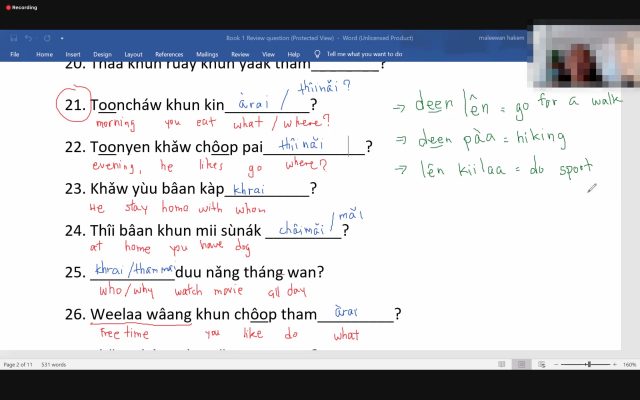 Recording
Book 1 Review question (Protected View) - Word (Unlicensed Product)
maleewan hakem
File Home Insert Draw Design Layout References Mailings Review View Help Tell me what you want to do
20. Thâa khun rûay khun yàak tham________?
21. Tooncháw khun kin àrai / thîinǎi ?
morning you eat what / where?
22. Toonyen khǎw chôop pai thîi nǎi ?
evening, he likes go where?
23. Khǎw yùu bâan kàp khrai ?
He stay home with whom
24. Thîi bâan khun mii sùnák châimǎi / mǎi ?
at home you have dog
25. khrai / thammai duu nǎng tháng wan?
who / why watch movie all day
26. Weelaa wâang khun chôop tham àrai ?
free time you like do what
→ deen lên = go for a walk
→ deen pàa = hiking
→ lên kiilaa = do sport
Page 2 of 11 531 words
160%